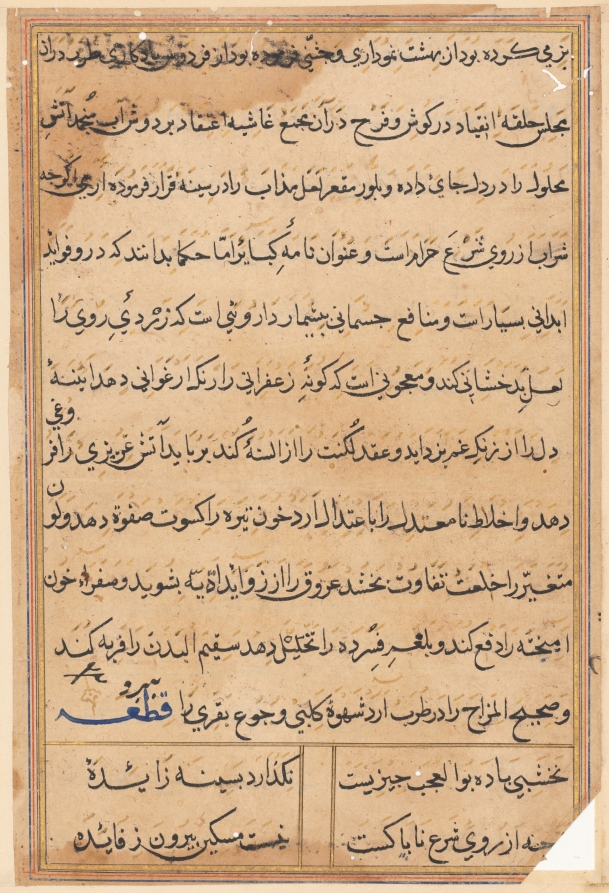 بزمی کرده بود از بهشت نموداری و جشنی فرموده بود از فردوس یادکاری طرب در ان
مجلس حلقهٔ انقیاد در کوش و فرح در آن مجمع غاشیه اعتقاد بر دوش آب منجمد آتش
محلول را در دل جای داده و بلور مقعر لعل مذاب را در سینه قرار فرموده ارجی اکرجه
شراب از روی شرع حرام است و عنوان نامهٔ کبایر اما حکما بدانند که درو فواید
ابدانی بسیار است و منافع جسمانی بیشمار داروئی است که زردی روی را
لعل بدخشانی کند و معجونی است که کونهٔ زعفرانی را رنک ارغوانی دهد اینهٔ
دل را از زنک غم بزداید و عقد لکنت را از السنهٔ کند برباید آتش غریزی را افروغی
دهد و اخلاط نامعتدل را باعتدال ارد خون تیره را کسوت صفوة دهد و لون
متغیر را خلعت تفاوت بخشد عروق را از زواید بشوید و صفراء خون
امیخته را دفع کند و بلغم فسرده را تحلیل دهد سقیم البدن را فربه کند
و صحیح المزاج را در طرب ارد شهوة کلبی و جوع بقری را ببرد قطعه
نخشبی باده بوالعجب جیزیست نکذارد بسینه زایده
از روی شرع ناپاکست نیست مسکین بیرون ز فایده